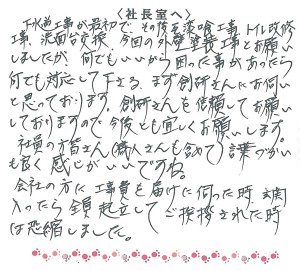 〈社長室へ〉
下水道工事が最初で、その後漆喰工事、トイレ改修
工事、洗面台交換、今回の外壁塗装工事とお願い
しましたが、何でもいいから困った事があったら
何でも対応して下さる、まず創研さんにお伺い
と思っております。創研さんを信頼してお願い
しておりますので今後とも宜しくお願いします。
社員の方皆さん(職人さんも含めて)言葉づかい
も良く感じがいいですね。
会社の方に工事費を届けに伺った時、玄関
入ったら全員起立してご挨拶された時
は恐縮しました。